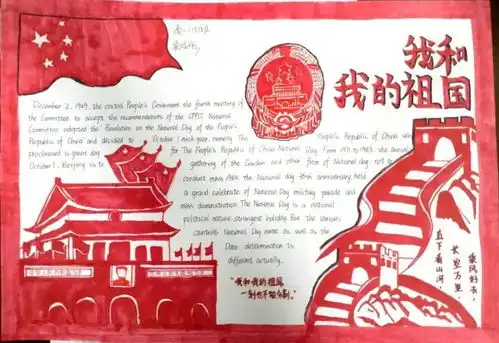 我和
我的祖国
December 2, 1949, the central People's Government the fourth meeting of
the Committee to accept the recommendations of the CPPCC National
Committee, adopted the "Resolution on the National Day of the People's
Republic of China and decided to October 1 each year, namely, The People's Republic of China was
proclaimed a great day for The People's Republic of China National Day. From 1950 to 1983, the annual
October 1, Beijing is to gathering of the Garden and other from of National day not to
conduct mass 1984, the National day 35th anniversary held
a grand celebrate of National Day military parade and
mass demonstration The National Day is a national
political nature strangest holiday. But the various
countries National Day name, as well as the
Date determination is
different actually.
"我和我的祖国
一刻也不能分割。"
乘风好去,
长空万里,
直下看山河。